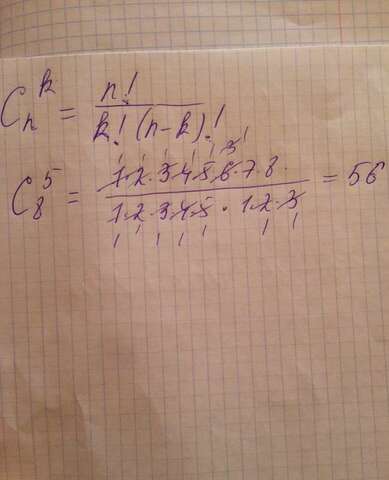 C_n^k = n! / k! (n-k)!
C_8^5 = 1·2·3·4·5·6·7·8 / 1·2·3·4·5 · 1·2·3 = 56